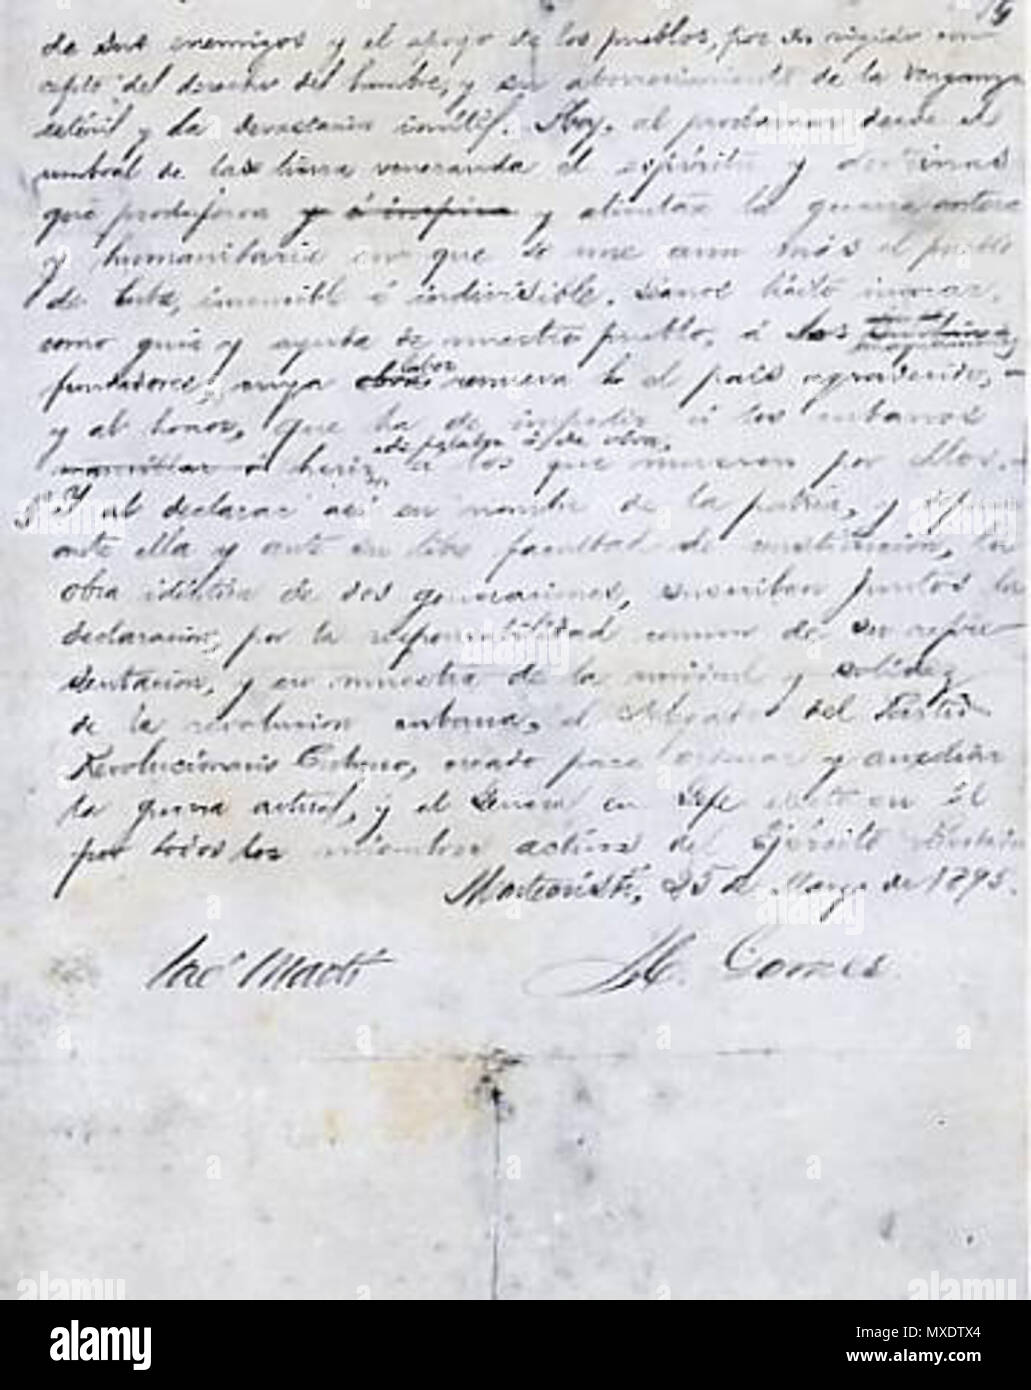 de sus enemigos y el apoyo de los pueblos, por su rígido con
cepto del derecho del hombre, y su aborrecimiento de la venganza
estéril y la devastación inútil. Hoy, al proclamar desde el
umbral de la tierra veneranda el espíritu y doctrinas
que produjeron y alientan la guerra entera
y humanitaria en que se une aun más el pueblo
de Cuba, invencible é indivisible, seanos lícito invocar,
como guía y ayuda de nuestro pueblo, á los magnánimos
fundadores, cuya labor renueva el país agradecido, –
y al honor, que ha de impedir á los cubanos
herir, de palabra ó de obra, á los que mueren por ellos. –
Y al declarar así en nombre de la patria, y deponer
ante ella y ante su libre facultad de constitución, la
obra idéntica de dos generaciones, suscriben juntos la
declaración, por la responsabilidad comun de su repre
sentación, y en muestra de la unidad y solidez
de la revolucion cubana, el Delegado del Partido
Revolucionario Cubano, creado para ordenar y auxiliar
la guerra actual, y el General en Jefe electo en él
por todos los miembros activos del Ejército Libertador
Montecristi, 25 de Marzo de 1895.
José Martí M. Gomez
alamy
Image ID: MXDTX4
www.alamy.com